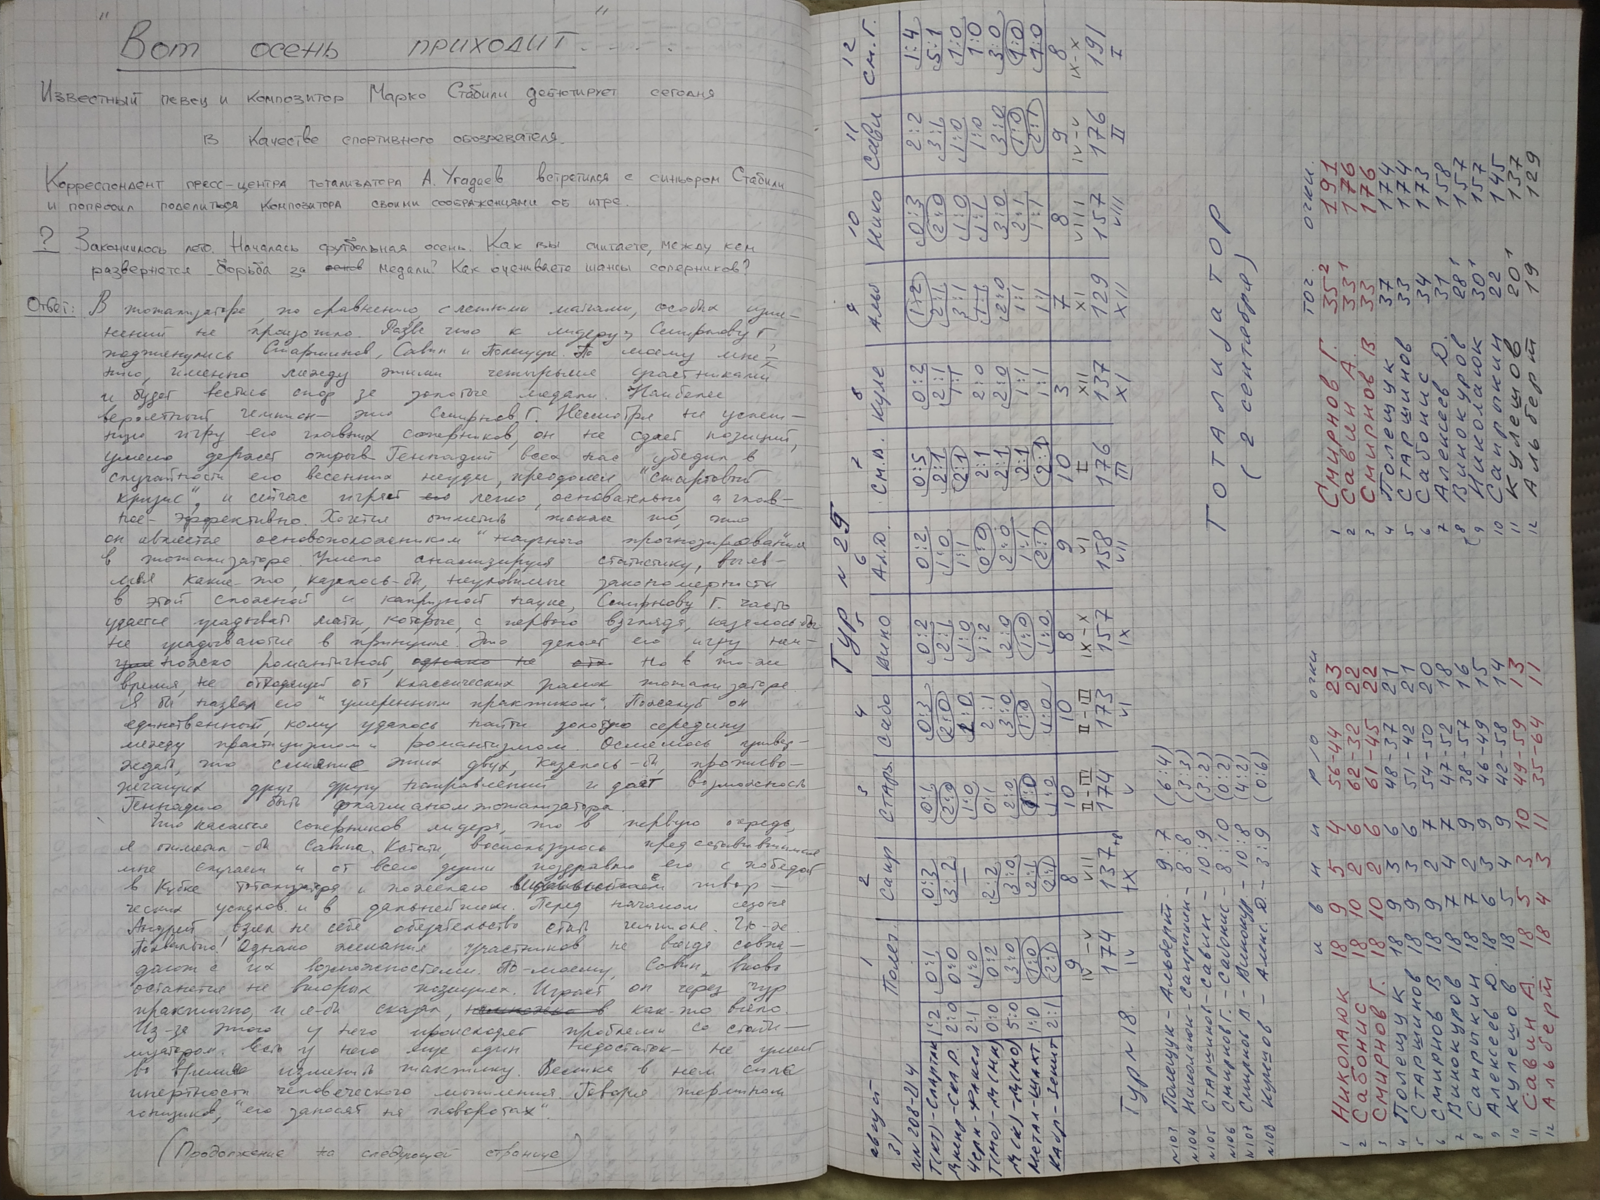 "Вот осень приходит......"
Известный певец и композитор Марко Стабили дебютирует сегодня
в качестве спортивного обозревателя.
Корреспондент пресс-центра тотализатора А. Угадаев встретился с синьором Стабили
и попросил поделиться композитора своими соображениями об игре.
? Закончилось лето. Началась футбольная осень. Как вы считаете, между кем
развернется борьба за медали? Как оцениваете шансы соперников?
Ответ: В тотализаторе, по сравнению с летними матчами, особых изме-
нений не произошло. Разве что к лидеру, Смирнову Г,
подтянулись Старшинов, Савин и Полещук. По моему мне-
нию, именно между этими четырьмя участниками
и будет вестись спор за золотые медали. Наиболее
вероятный чемпион - это Смирнов Г. Несмотря на успеш-
ную игру его главных соперников, он не сдает позиций,
умело держит отрыв. Геннадий всех нас убедил в
случайности его весенних неудач, преодолел "стартовый
кризис", и сейчас играет легко, основательно, а глав-
ное - эффективно. Хочется отметить также то, что
он является основоположником "научного прогнозирования"
в тотализаторе. Умело анализируя статистику, выяв-
ляя какие-то, казалось-бы, неуловимые закономерности
в этой сложной и капризной науке, Смирнову Г. часто
удается угадывать матчи, которые, с первого взгляда, казалось бы
не угадываются в принципе. Это делает его игру нем-
ножко романтичной, но в то-же
время, не отходящей от классических рамок тотализатора
Я бы назвал его "умеренным практиком". Пожалуй он
единственный, кому удалось найти золотую середину
между практицизмом и романтизмом. Осмелюсь
что слияние этих двух, казалось-бы, противо-
лежащих друг другу направлений и дает возможность
Геннадию быть флагманом тотализатора.
Что касается соперников лидера, то в первую очередь,
я отметил-бы Савина. Кстати, воспользуюсь представившимся
мне случаем и от всего души поздравлю его с победой
в Кубке тотализатора и пожелаю твор-
ческих успехов и в дальнейшем. Перед началом сезона
Андрей взял на себя обязательство стать чемпионом.
Похвально! Однако желания участников не всегда совпа-
дают с их возможностями. По-моему, Савин вновь
останется на вторых позициях. Играет он через чур
практично, и я-бы сказал, как-то вяло.
Из-за этого у него происходят проблемы со
Есть у него еще один недостаток - не умеет
во время изменить тактику. Велика в нем сила
инертности человеческого мышления. Говоря жаргоном
гонщиков, "его заносит на поворотах".
(Продолжение на следующей странице)
Тур N 29
1 2 3 4 5 6 7 8 9 10 11 12
Полещ. Сапр Старш. Сабо Вино Ал.D. См.В. Куле Аль Нико Сави См.Г.
N.N 208-214
Т(КТ)-Спартак 1:2 0:1 0:3 0:1 0:3 0:2 0:2 0:5 0:2 1:2 0:3 2:2 1:4
Днепр-СКА Р 2:0 0:0 3:2 2:0 2:0 2:1 1:0 2:1 2:1 2:1 2:0 3:1 5:1
Черн-Факел 2:1 1:0 – 1:0 1:0 1:0 1:1 2:1 1:1 3:1 1:0 1:0 1:0
Т(МО)-Д(МН) 0:0 0:2 2:2 0:1 2:1 1:2 0:0 2:1 2:0 1:1 1:1 1:0 1:0
Д(К)-Д(МО) 5:0 3:0 3:0 2:0 3:0 2:0 2:0 2:1 2:0 2:0 3:0 3:0 3:0
Метал-Шахт 1:0 1:0 2:1 1:0 1:0 1:0 1:1 2:1 1:1 1:1 2:1 1:0 1:0
Кайр-Зенит 2:1 2:1 2:1 1:0 1:0 1:0 2:1 2:1 1:1 1:1 1:1 2:1 1:0
9 8 10 10 8 9 10 3 7 8 9 8
IV-V VIII II-III II-III IX-X VI II XII XI VIII IV-V IX-X
174 137+8 174 173 157 158 176 137 129 157 176 191
IV IX V VI IX VII III XI XII VIII II I
Тур N 18
N103 Полещук - Альберт - 9:7 (6:4)
N104 Николаюк - Сапрыкин - 8:8 (3:3)
N105 Старшинов - Савин - 10:9 (3:2)
N106 Смирнов Г. - Сабонис - 8:10 (0:2)
N107 Смирнов В - Винокур - 10:8 (4:2)
N108 Кулешов - Алекс. D - 3:9 (0:6)
и в н п р/о очки
1 Николаюк 18 9 5 4 56-44 23
2 Сабонис 18 10 2 6 62-32 22
3 Смирнов Г. 18 10 2 6 61-45 22
4 Полещук 18 9 3 6 48-37 21
5 Старшинов 18 9 3 6 51-42 21
6 Смирнов В 18 9 2 7 54-50 20
7 Винокуров 18 7 4 7 47-52 18
8 Сапрыкин 18 7 2 9 38-57 16
9 Алексеев D. 18 6 3 9 46-49 15
10 Кулешов 18 5 4 9 42-58 14
11 Савин А. 18 5 3 10 49-59 13
12 Альберт 18 4 3 11 35-64 11
Тотализатор
(2 сентября)
тог. очки.
1 Смирнов Г. 35² 191
2 Савин А. 33¹ 176
3 Смирнов В 33¹ 176
4 Полещук 37 174
5 Старшинов 33 174
6 Сабонис 34 173
7 Алексеев D. 31 158
8 Винокуров 28¹ 157
9 Николаюк 30¹ 157
10 Сапрыкин 22 145
11 Кулешов 20¹ 137
12 Альберт 19 129